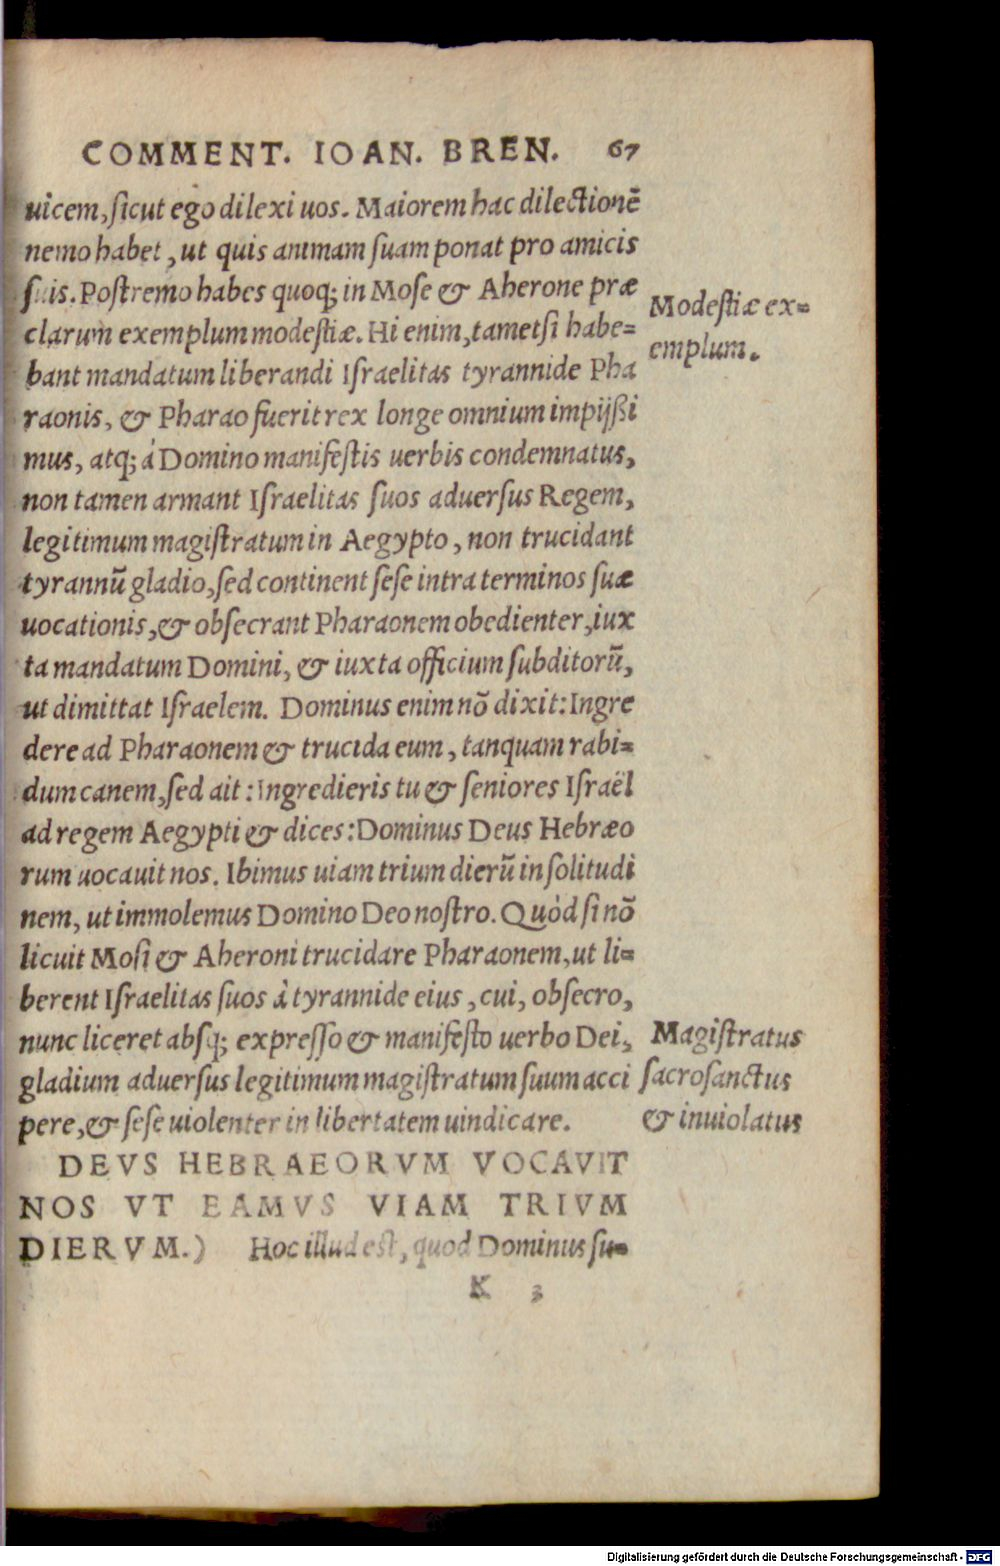 COMMENT. IOAN. BREN. 67
uicem, sicut ego dilexi uos. Maiorem hac dilectionē
nemo habet, ut quis animam suam ponat pro amicis
suis. Postremo habes quoq; in Mose & Aherone præ
clarum exemplum modestiæ. Hi enim, tametsi habe=
bant mandatum liberandi Israelitas tyrannide Pha
raonis, & Pharao fuerit rex longe omnium impijßi
mus, atq; à Domino manifestis uerbis condemnatus,
non tamen armant Israelitas suos aduersus Regem,
legitimum magistratum in Aegypto, non trucidant
tyrannū gladio, sed continent sese intra terminos suæ
uocationis, & obsecrant Pharaonem obedienter, iux
ta mandatum Domini, & iuxta officium subditorū,
ut dimittat Israelem. Dominus enim nō dixit: Ingre
dere ad Pharaonem & trucida eum, tanquam rabi=
dum canem, sed ait: Ingredieris tu & seniores Israël
ad regem Aegypti & dices: Dominus Deus Hebræo
rum uocauit nos. Ibimus uiam trium dierū in solitudi
nem, ut immolemus Domino Deo nostro. Quòd si nō
licuit Mosi & Aheroni trucidare Pharaonem, ut li=
berent Israelitas suos à tyrannide eius, cui, obsecro,
nunc liceret absq; expresso & manifesto uerbo Dei,
gladium aduersus legitimum magistratum suum acci
pere, & sese uiolenter in libertatem uindicare.
DEVS HEBRAEORVM VOCAVIT
NOS VT EAMVS VIAM TRIVM
DIERVM.) Hoc illud est, quod Dominus su=
K 3
Modestiæ ex=
emplum.
Magistratus
sacrosanctus
& inuiolatus
Digitalisierung gefördert durch die Deutsche Forschungsgemeinschaft - DFG